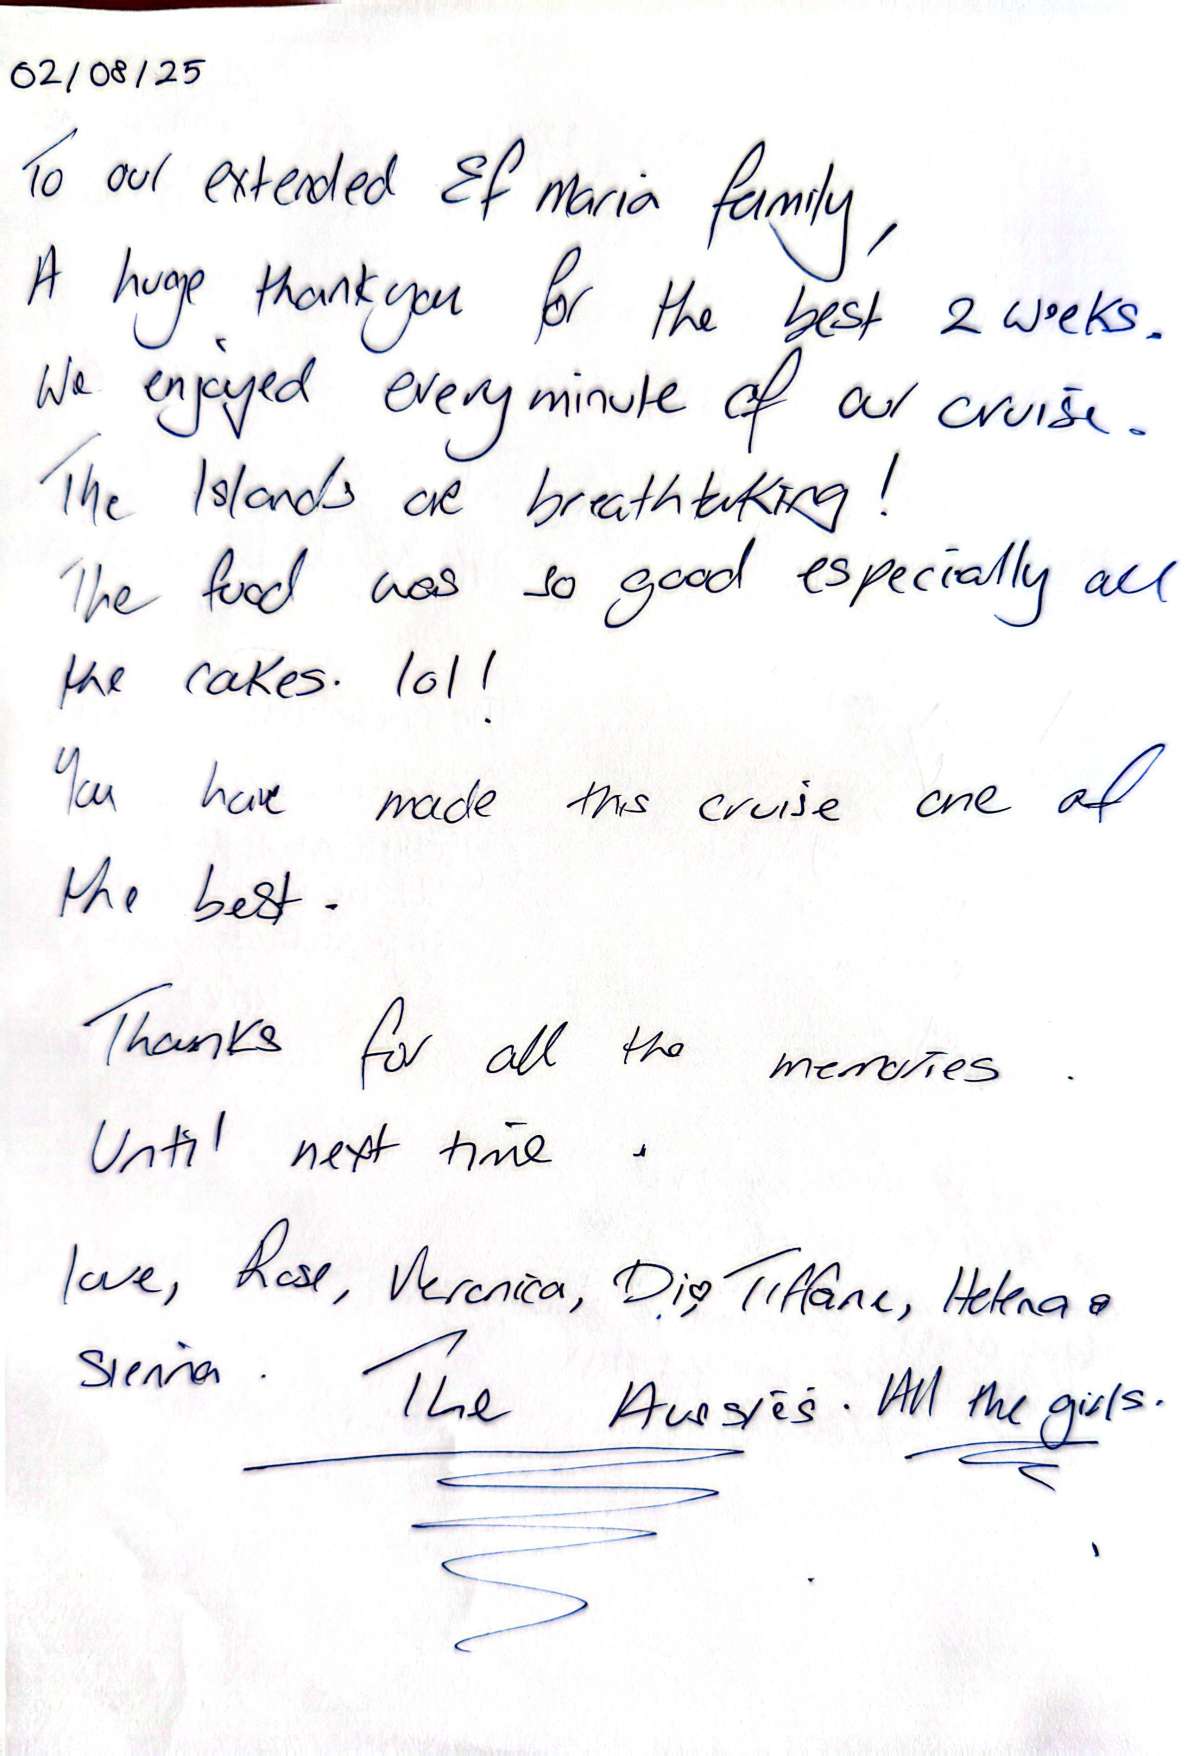 02/08/25
To our extended Ef Maria family,
A huge thankyou for the best 2 weeks.
We enjoyed every minute of our cruise.
The Islands are breathtaking!
The food was so good especially all
the cakes. lol!
You have made this cruise one of
the best.
Thanks for all the memories.
Until next time.
love, Rose, Veronica, Dio, Tiffane, Helena &
Sienna. The Aussies. All the girls.